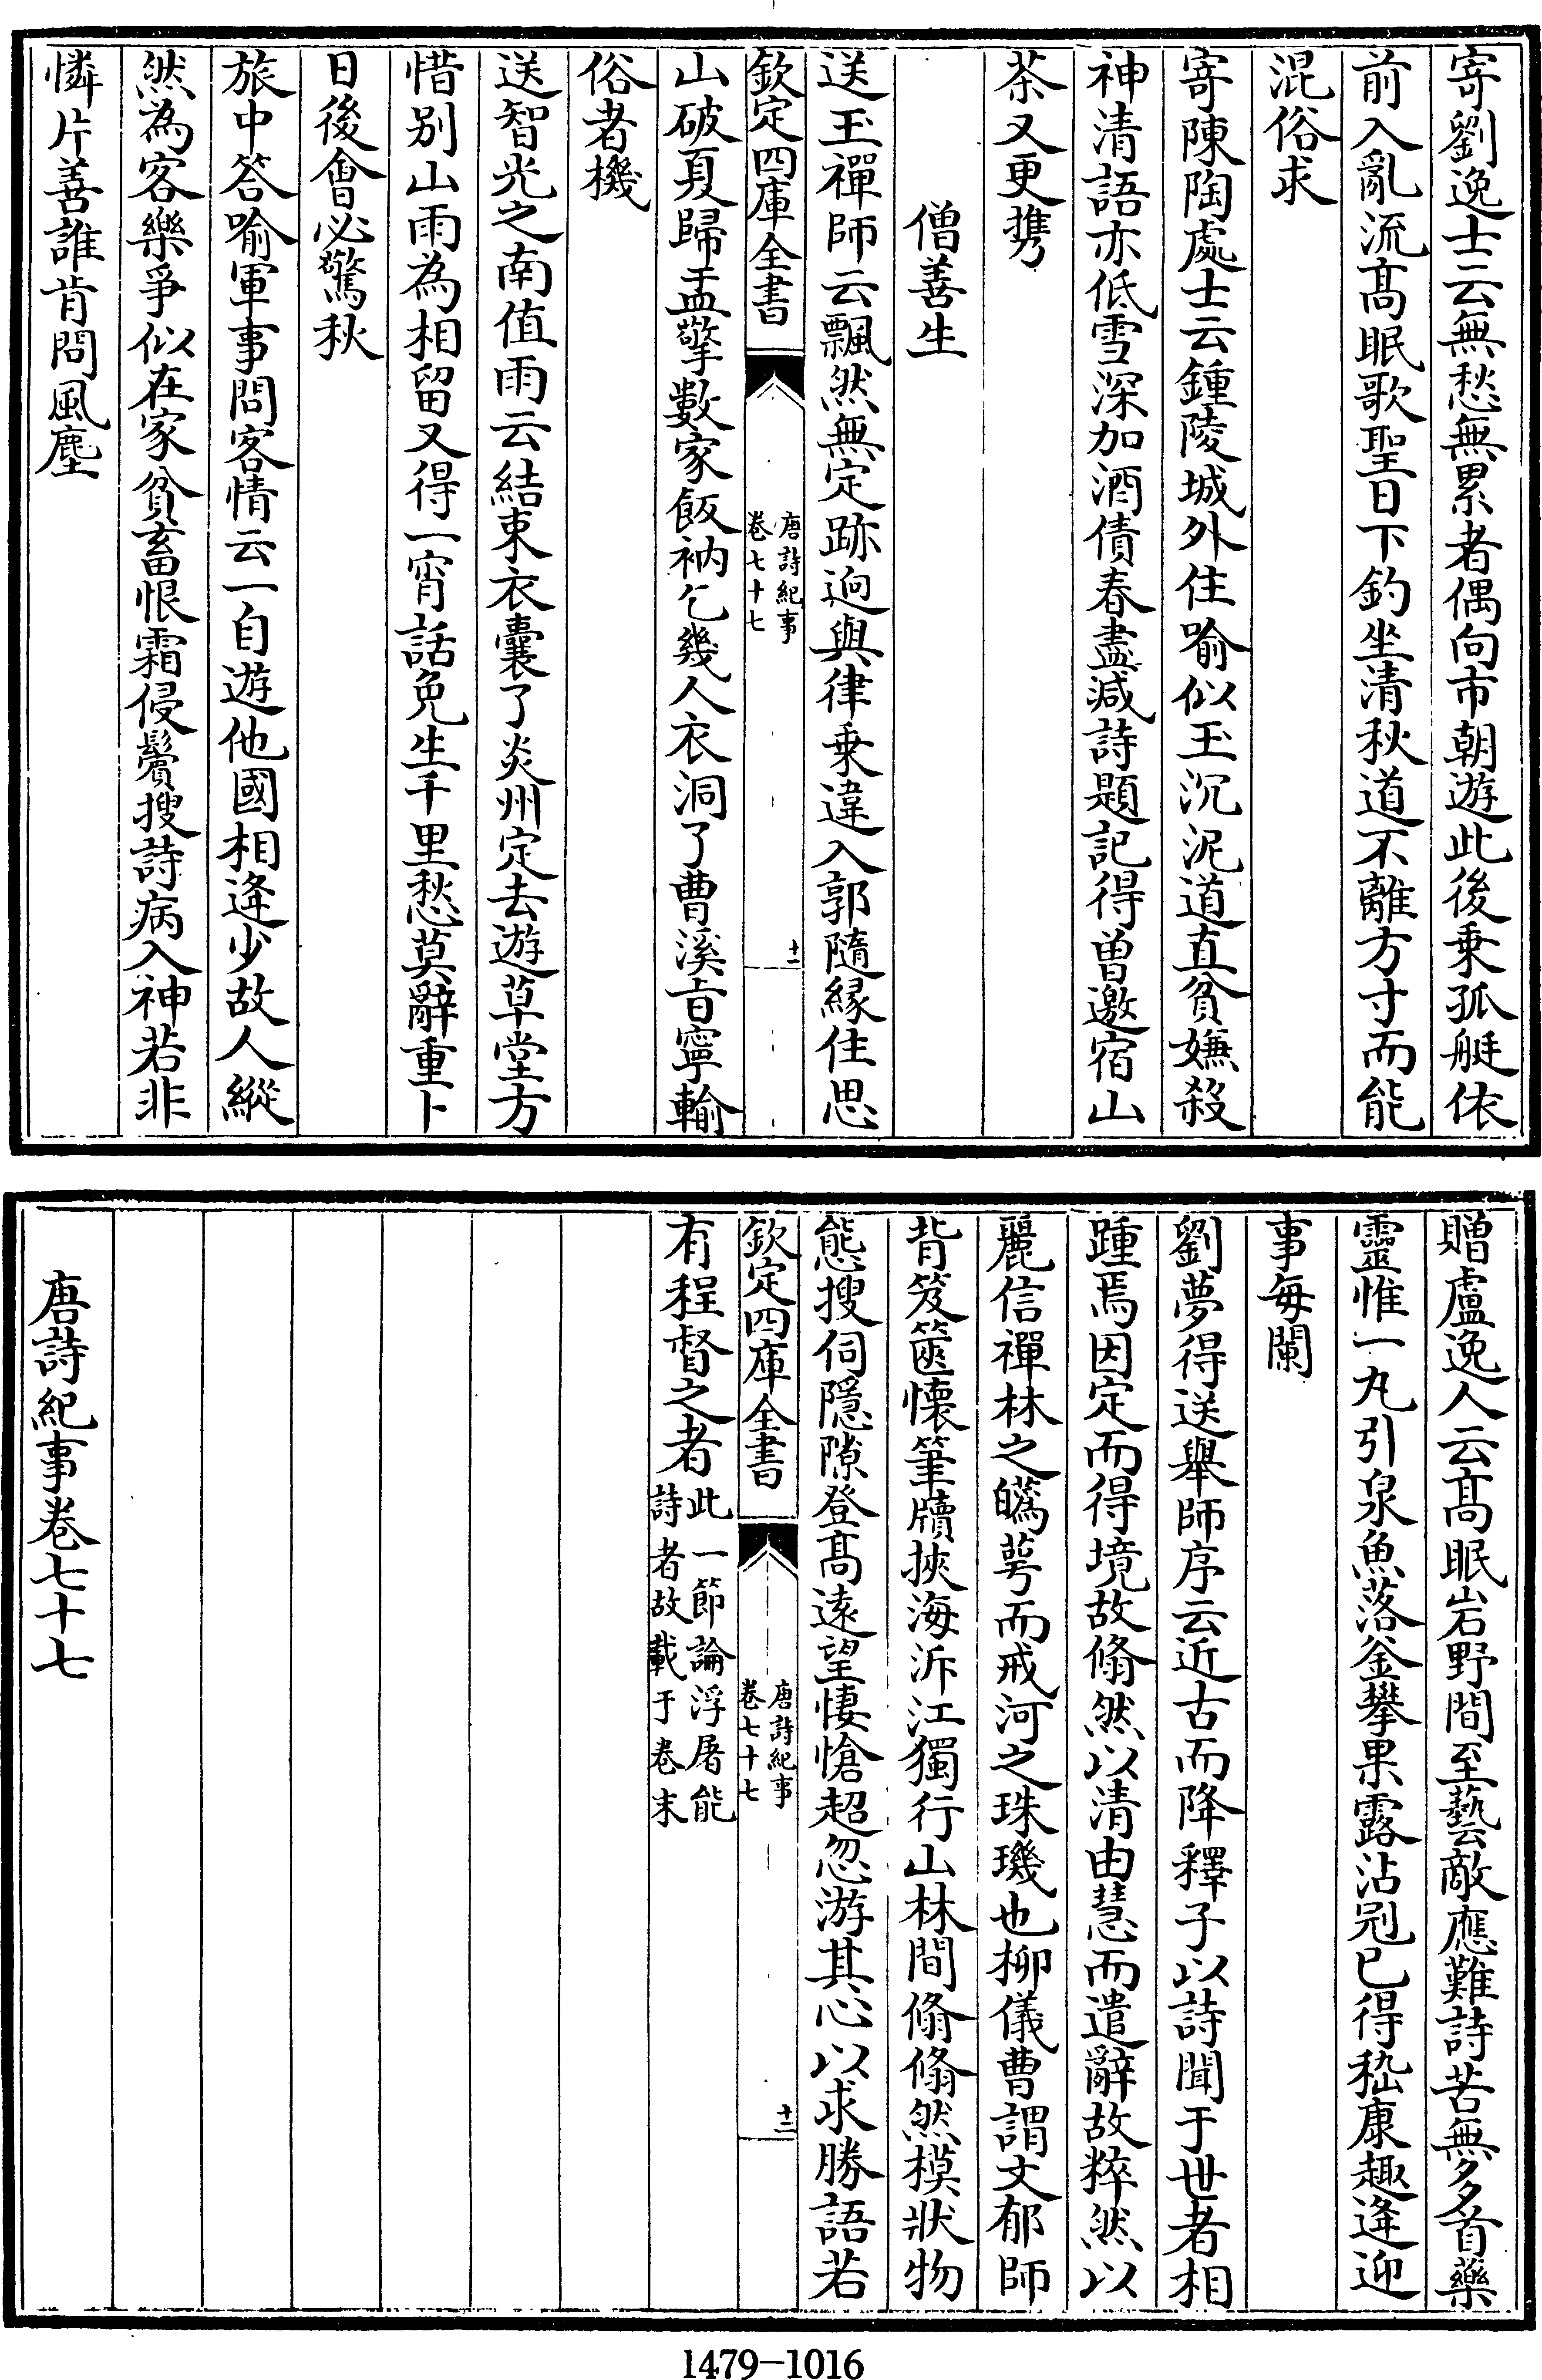 寄劉逸士云無愁無累者偶向市朝遊此後乗孤艇依
前入亂流髙眠歌聖日下釣坐清秋道不離方寸而能
混俗求
寄陳陶處士云鍾陵城外住喻似玉沉泥道直貧嫌殺
神清語亦低雪深加酒債春盡減詩題記得曽邀宿山
茶又更携
僧善生
送玉禪師云飄然無定跡逈與律乗違入郭隨縁住思
欽定四庫全書
唐詩紀事
卷七十七
十一
山破夏歸盂擎數家飯衲乞幾人衣洞了曹溪㫖寧輸
俗者機
送智光之南值雨云結束衣囊了炎州定去遊草堂方
惜别山雨為相留又得一宵話免生千里愁莫辭重卜
日後會必驚秋
旅中答喻軍事問客情云一自遊他國相逄少故人縱
然為客樂爭似在家貧畜恨霜侵鬢搜詩病入神若非
憐片善誰肯問風塵
贈盧逸人云髙眠岩野間至藝敵應難詩苦無多首藥
靈惟一丸引泉魚落釡攀果露沾冠已得嵇康趣逄迎
事每闌
劉夢得送舉師序云近古而降釋子以詩聞于世者相
踵焉因定而得境故翛然以清由慧而遣辭故粹然以
麗信禪林之蘤萼而戒河之珠璣也柳儀曹謂文郁師
背笈篋懷筆牘挾海泝江獨行山林間翛翛然模狀物
態搜伺隱隙登髙逺望悽愴超忽游其心以求勝語若
欽定四庫全書
唐詩紀事
卷七十七
十二
有程督之者此一節論浮屠能
詩者故載于卷末
唐詩紀事卷七十七
1479—1016